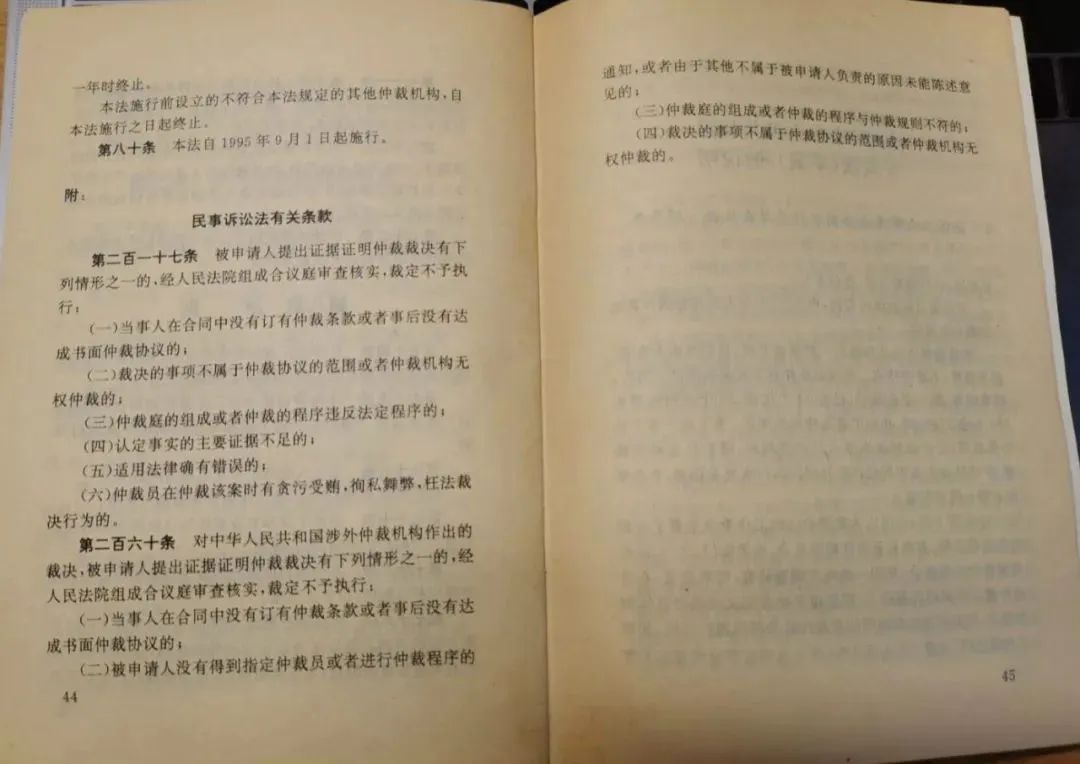 一年时终止。
本法施行前设立的不符合本法规定的其他仲裁机构,自
本法施行之日起终止。
第八十条 本法自1995年9月1日起施行。
附:
民事诉讼法有关条款
第二百一十七条 被申请人提出证据证明仲裁裁决有下
列情形之一的,经人民法院组成合议庭审查核实,裁定不予执
行:
(一)当事人在合同中没有订有仲裁条款或者事后没有达
成书面仲裁协议的;
(二)裁决的事项不属于仲裁协议的范围或者仲裁机构无
权仲裁的;
(三)仲裁庭的组成或者仲裁的程序违反法定程序的;
(四)认定事实的主要证据不足的;
(五)适用法律确有错误的;
(六)仲裁员在仲裁该案时有贪污受贿,徇私舞弊,枉法裁
决行为的。
第二百六十条 对中华人民共和国涉外仲裁机构作出的
裁决,被申请人提出证据证明仲裁裁决有下列情形之一的,经
人民法院组成合议庭审查核实,裁定不予执行:
(一)当事人在合同中没有订有仲裁条款或者事后没有达
成书面仲裁协议的;
(二)被申请人没有得到指定仲裁员或者进行仲裁程序的
44
通知,或者由于其他不属于被申请人负责的原因未能陈述意
见的;
(三)仲裁庭的组成或者仲裁的程序与仲裁规则不符的;
(四)裁决的事项不属于仲裁协议的范围或者仲裁机构无
权仲裁的。
45